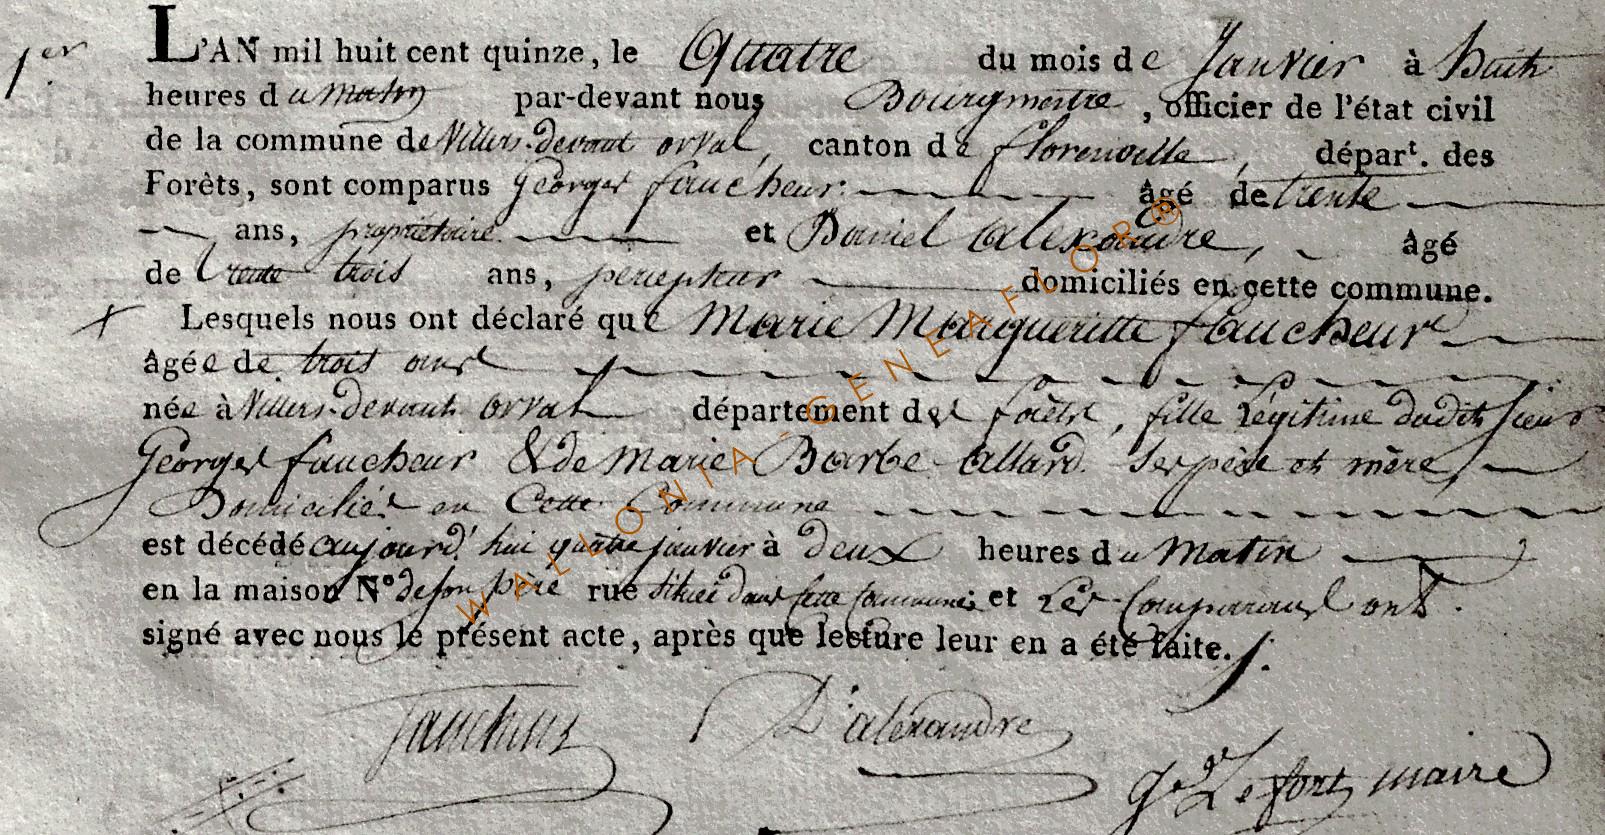 1er L'AN mil huit cent quinze, le Quatre du mois de Janvier à huit
heures du matin par-devant nous Bourgmestre, officier de l'état civil
de la commune de Villers-devant orval, canton de florenville,épart. des
Forêts, sont comparus Georges faucheur âgé de trente
ans, propriétaire et Daniel alexandre, âgé
de trente trois ans, percepteur domiciliés en cette commune.
Lesquels nous ont déclaré que Marie Margueritte faucheur
âgée de trois ans
née à Villers-devant orval département des forêts, fille légitime dudit Sieur
Georges faucheur & de Marie Barbe allard ses père et mère,
Domiciliés en Cette Commune
est décédé aujourd'hui quatre janvier à deux heures du Matin
en la maison N° de son père rue située dans cette Commune; et les Comparans ont
signé avec nous le présent acte, après que lecture leur en a été faite.
faucheur D. alexandre
Lefort maire
WALLONIA-GENEAFLOR®